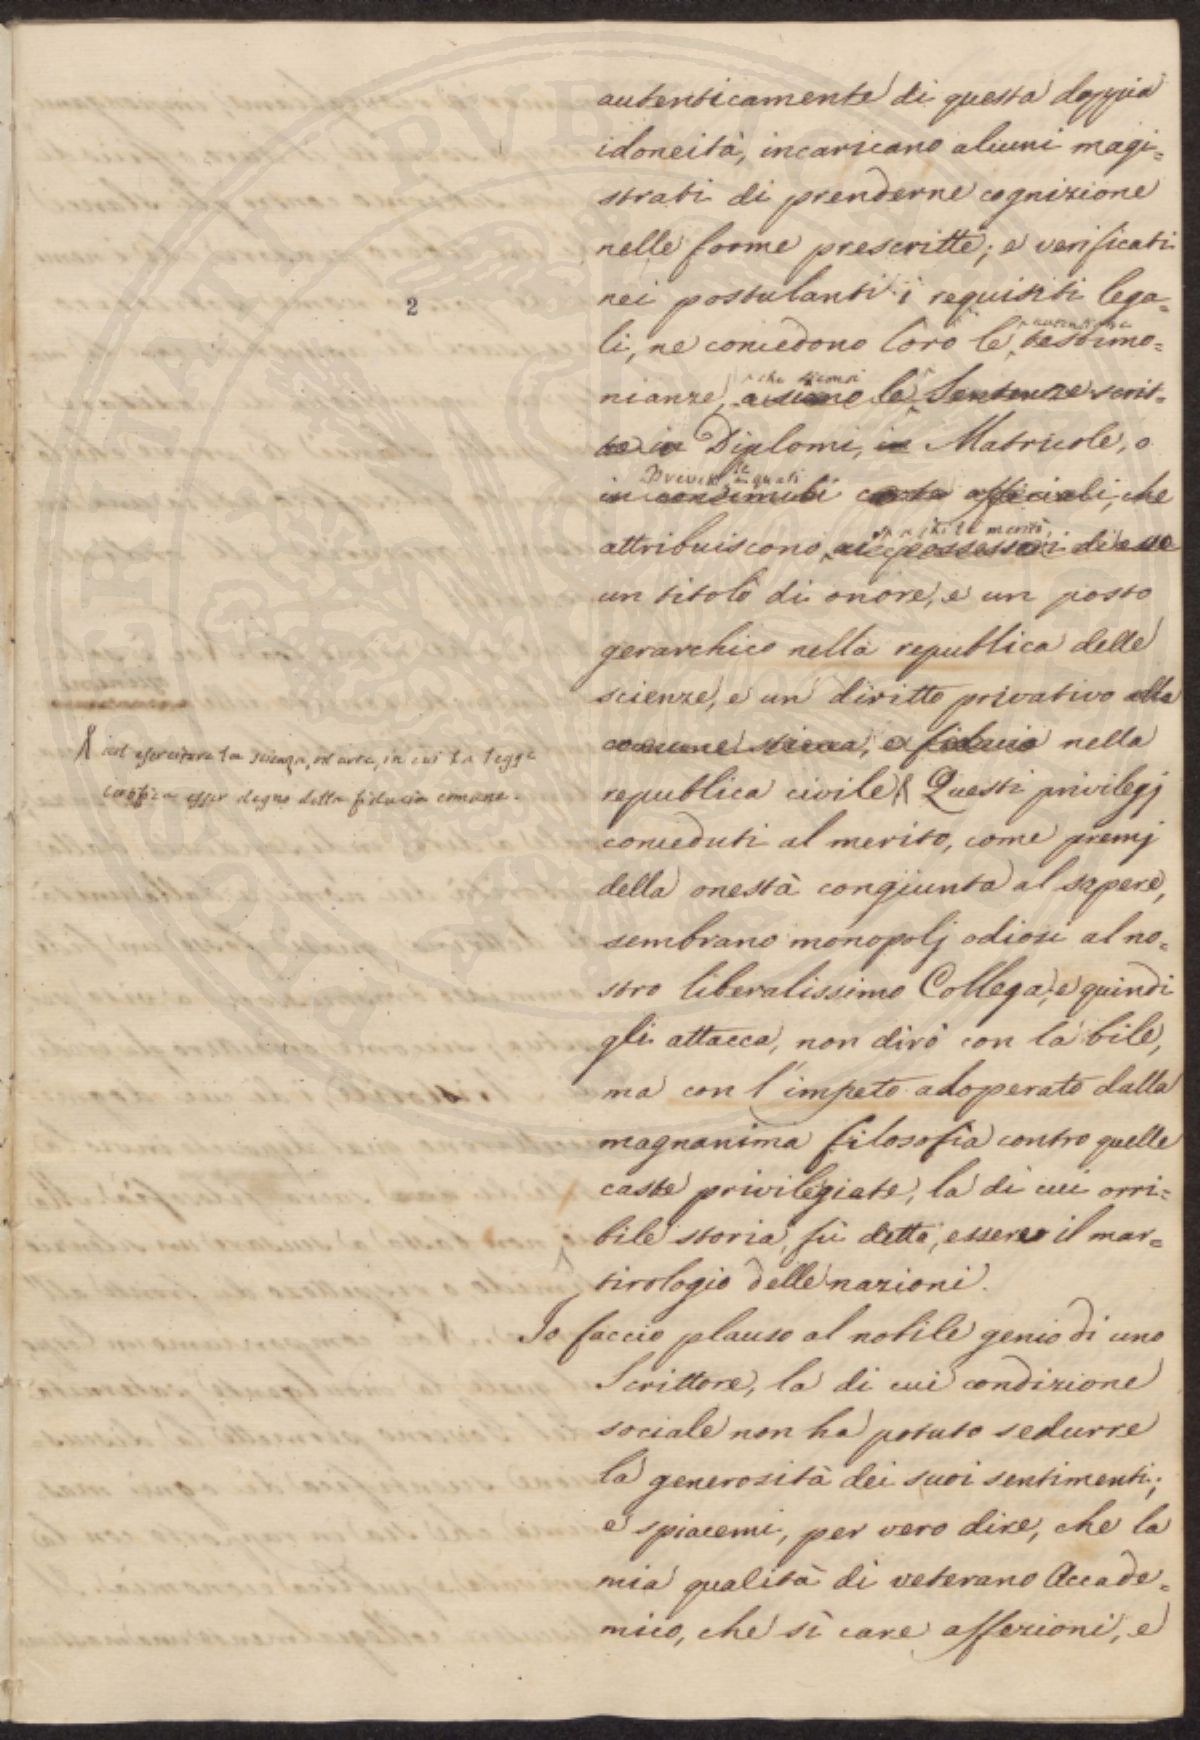 autenticamente di questa doppia
idoneità, incaricano alcuni magi=
strati di prenderne cognizione
nelle forme prescritte; e verificati
nei postulanti i requisiti lega=
2
li, ne concedono loro le testimo=
nianze, che siensi le Sentenze scrit=
te in Diplomi, in Matricole, o
Brevetti, quali
in consimili carte officiali, che
attribuiscono a chi le meritò, ai possessori di esse
un titolo di onore, e un posto
gerarchico nella republica delle
scienze, e un diritto privativo alla
comune stima, e fiducia nella
republica civile Questi privilegj
ad esercitare la scienza, od arte, in cui la legge
esser degno della fiducia comune.
conceduti al merito, come premj
della onestà congiunta al sapere,
sembrano monopolj odiosi al no=
stro liberalissimo Collega, e quindi
gli attacca, non dirò con la bile,
ma con l'impeto adoperato dalla
magnanima filosofia contro quelle
caste privilegiate, la di cui orri=
bile storia, fù detto, essere il mar=
tirologio delle nazioni.
Io faccio plauso al nobile genio di uno
Scrittore, la di cui condizione
sociale non ha potuto sedurre
la generosità dei suoi sentimenti;
e spiacemi, per vero dire, che la
mia qualità di veterano Accade=
mico, che sì care affezioni, e